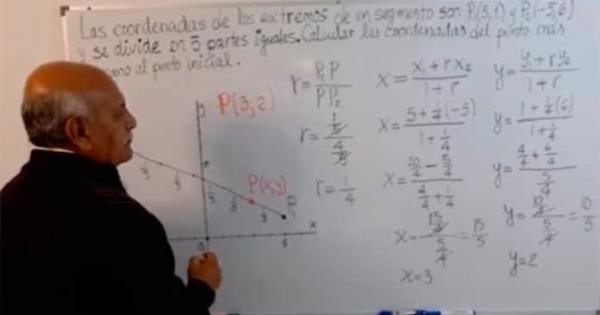 Las coordenadas de los extremos de un segmento son P₁(5,1) y P₂(-5,6)
y se divide en 5 partes iguales. Calcular las coordenadas del punto más
cercano al punto inicial.
r = P₁P / PP₂
r = (1/5) / (4/5)
r = 1/4
x = (x₁ + r x₂) / (1 + r)
x = (5 + ¼(-5)) / (1 + ¼)
x = (20/4 - 5/4) / (4/4 + 1/4)
x = (15/4) / (5/4) = 15/5
x = 3
y = (y₁ + r y₂) / (1 + r)
y = (1 + ¼(6)) / (1 + ¼)
y = (4/4 + 6/4) / (5/4)
y = (10/4) / (5/4) = 10/5
y = 2
P(3,2)
y
P(x,y)
P₁
x
0